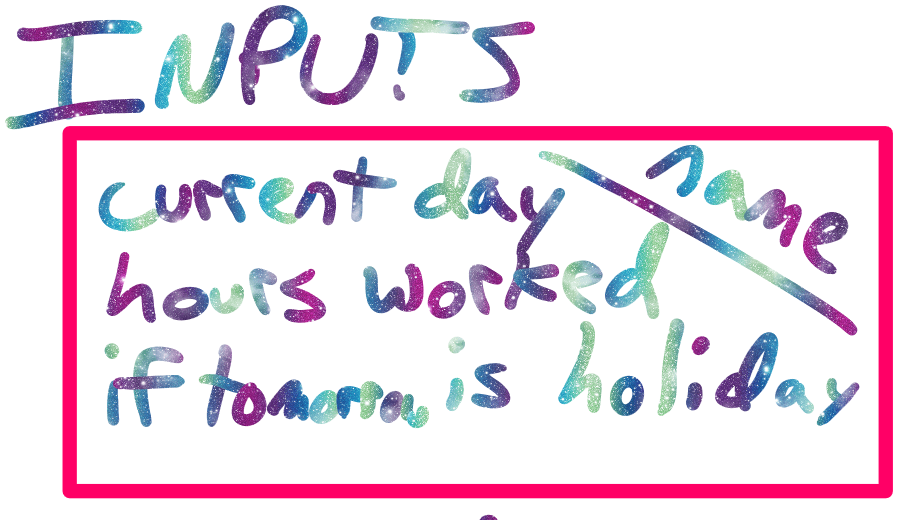 INPUTS
current day name
hours worked
if tomorrow is holiday